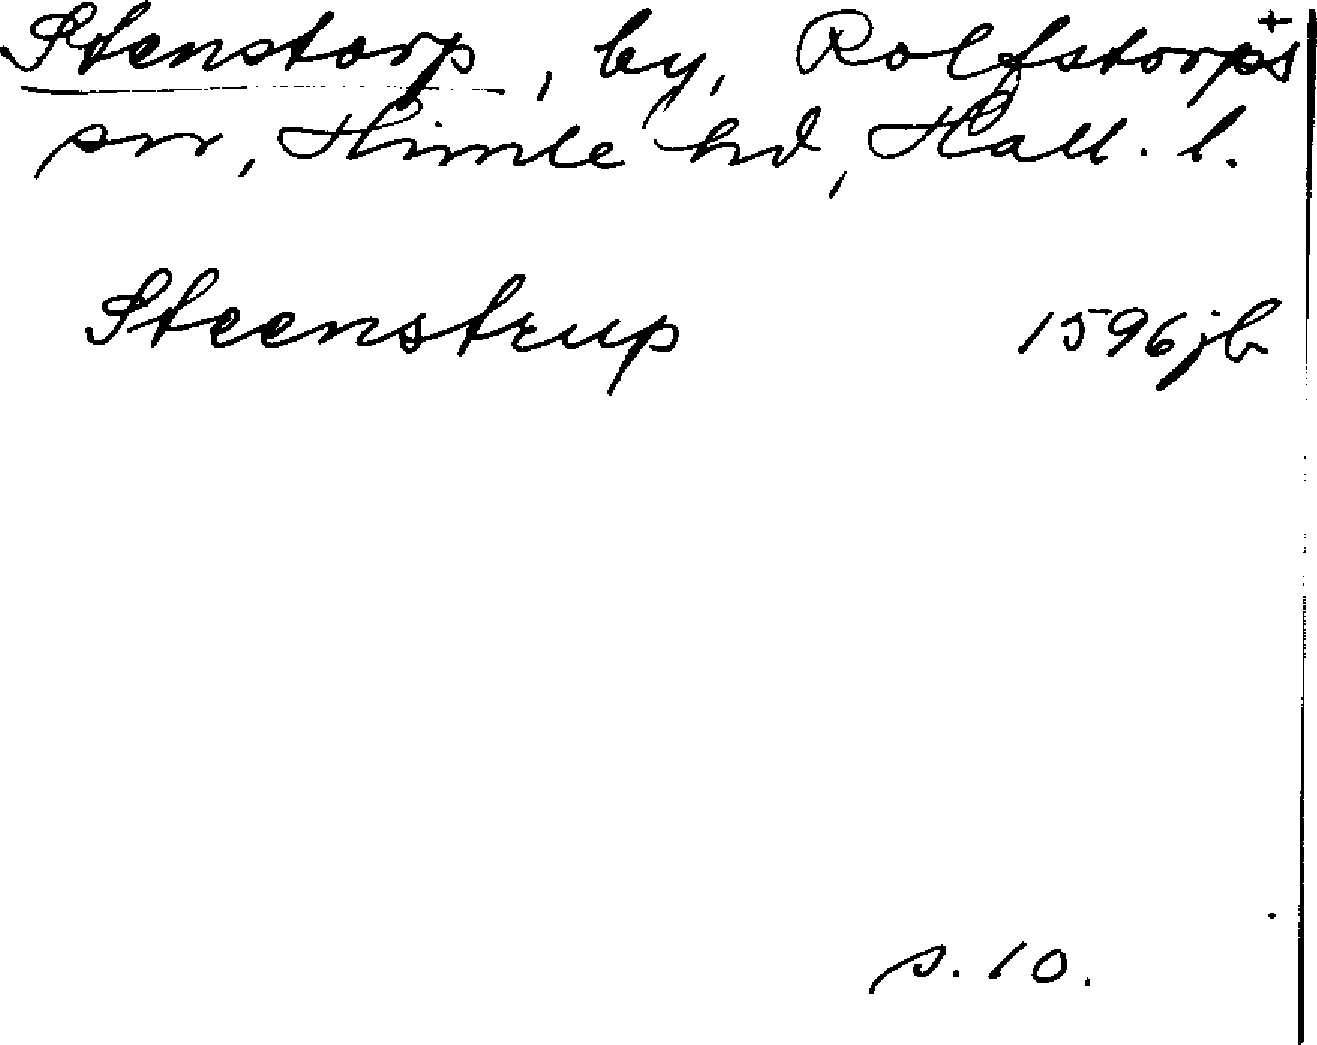 Stenstorp, by, Rolfstorps +
sn, Himle hd, Hall. l.
Steenstrup 1596 jb
s. 10.